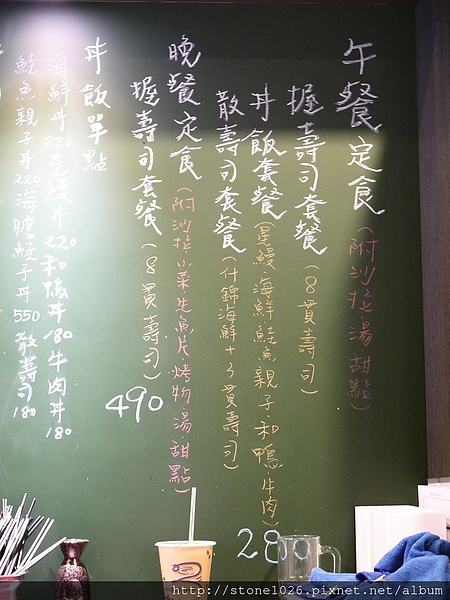 午餐定食(附沙拉.湯.甜點)
握壽司套餐(8貫壽司)
丼飯套餐(星鰻.海鮮.鮭魚親子.和鴨.牛肉)
散壽司套餐(什錦海鮮+3貫壽司)
280
晚餐定食(附沙拉.小菜.生魚片.烤物.湯.甜點)
握壽司套餐(8貫壽司)
490
丼飯單點
海鮮丼220 星鰻丼220 和豚丼180 牛肉丼180
鮭魚親子丼220 海膽鮭子丼550 散壽司180
http://stone1026.pixnet.net/album